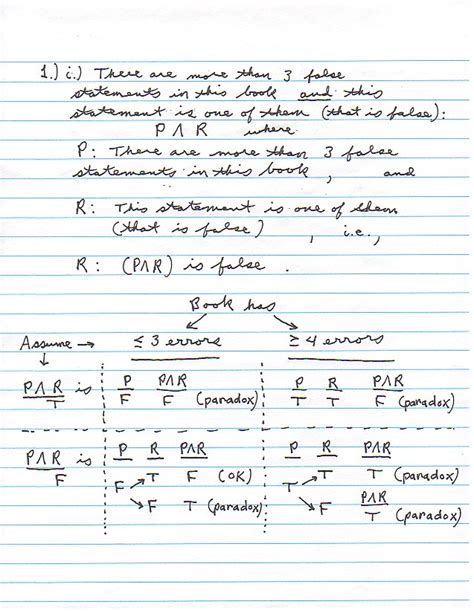 1.) i.) There are more than 3 false
statements in this book and this
statement is one of them (that is false):
P ∧ R where
P: There are more than 3 false
statements in this book, and
R: This statement is one of them
(that is false), i.e.,
R: (P∧R) is false.
Book has
Assume → ≤ 3 errors ≥ 4 errors
P∧R is P P∧R P R P∧R
T F F (paradox) T T F (paradox)
P∧R is P R P∧R P R P∧R
F F T F (OK) T T T (paradox)
P∧R
F T (paradox) F T (paradox)